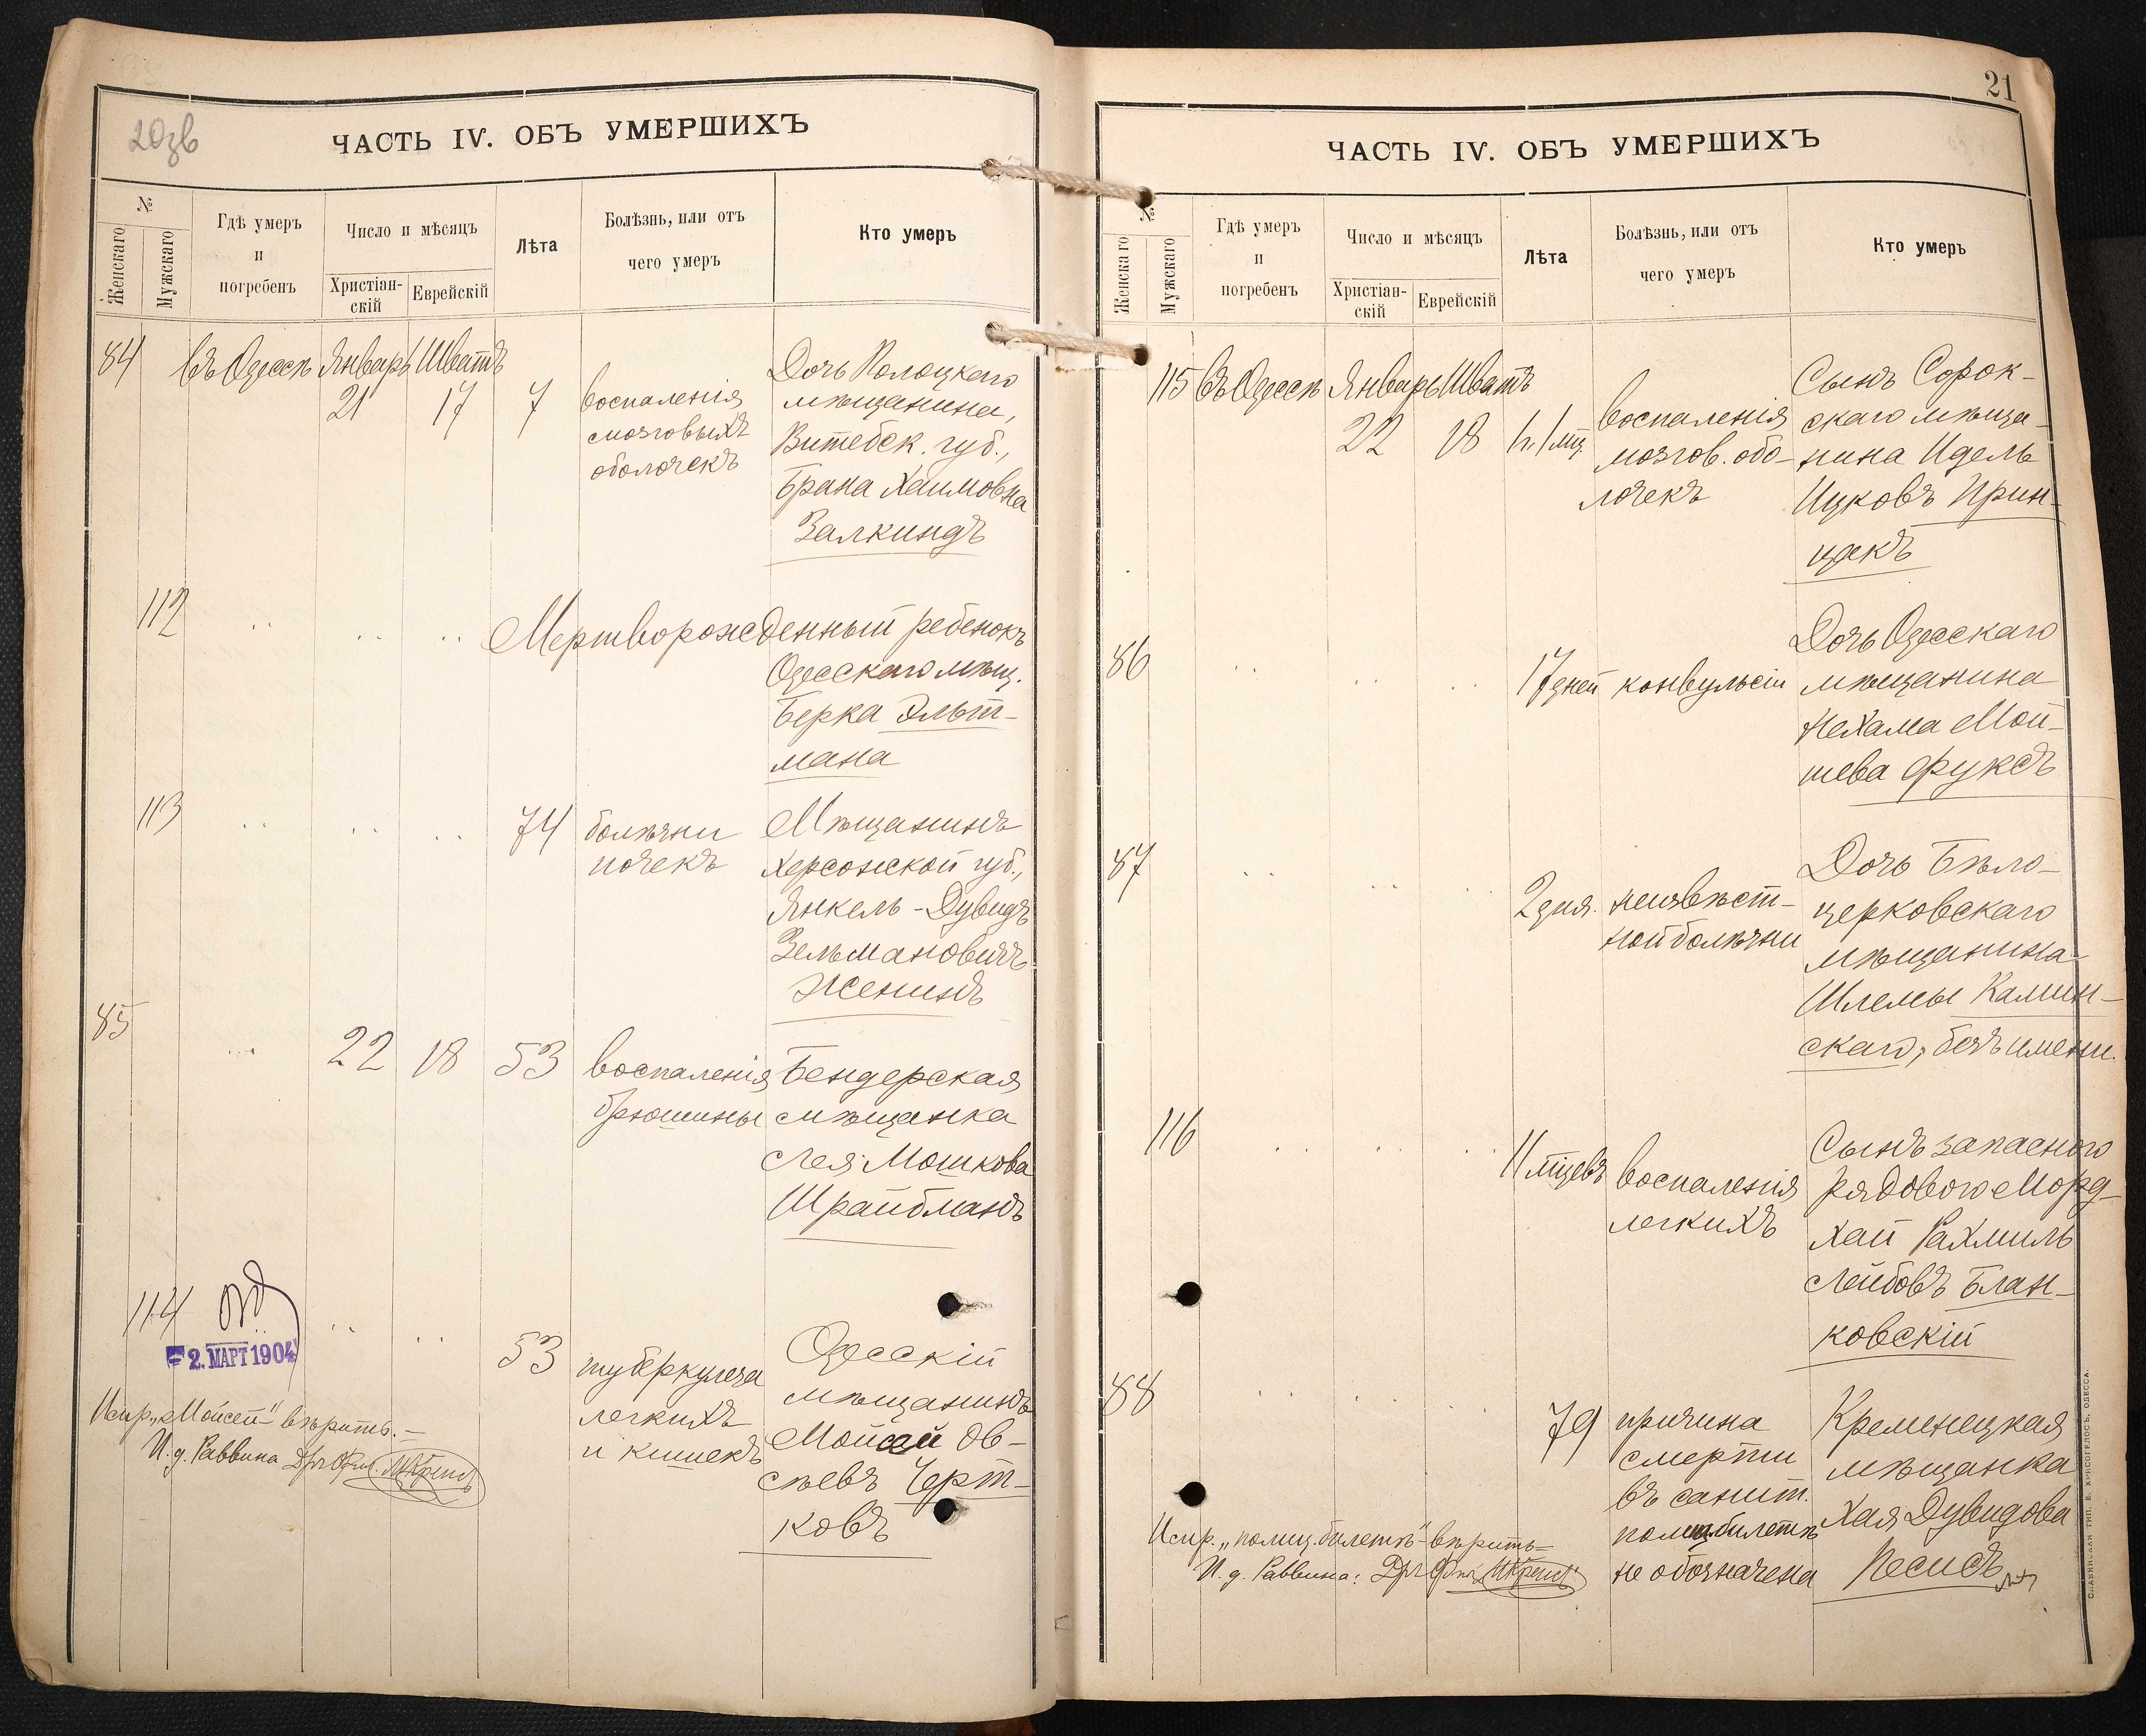 20зв
ЧАСТЬ IV. ОБЪ УМЕРШИХЪ
№
Женскаго
Мужскаго
Гдѣ умеръ
и
погребенъ
Число и мѣсяцъ
Христіан-
скій
Еврейскій
Лѣта
Болѣзнь, или отъ
чего умеръ
Кто умеръ
84 въ Одессѣ Январь Шватъ
21 17 7
воспаленія
мозговыхъ
оболочекъ
Дочь Полоцкаго
мѣщанина,
Витебск. губ.,
Брана Хаимовна
Залкиндъ
112 Мертворожденный ребенокъ
Одесскаго мѣщ.
Берка Эльт-
мана
113 74
болѣзни
почекъ
Мѣщанинъ
Херсонской губ.,
Янкель-Дувидъ
Зельмановичъ
Женинъ
85 22 18 53
воспаленія
брюшины
Бендерская
мѣщанка
Лея Мошкова
Шрайбманъ
114 53
2. МАРТ 1904
туберкулеза
легкихъ
и кишекъ
Одесскій
мѣщанинъ
Мойсей Ов-
сѣевъ Черт-
ковъ
Испр. „Мойсей" вѣрить.—
И. д. Раввина
21
ЧАСТЬ IV. ОБЪ УМЕРШИХЪ
№
Женскаго
Мужскаго
Гдѣ умеръ
и
погребенъ
Число и мѣсяцъ
Христіан-
скій
Еврейскій
Лѣта
Болѣзнь, или отъ
чего умеръ
Кто умеръ
115 въ Одессѣ Январь Шватъ
22 18
воспаленія
мозгов. обо-
лочекъ
Сынъ Сорок-
скаго мѣща-
нина Идель
Ицковъ Прин-
цекъ
86 17 дней конвульсіи
Дочь Одесскаго
мѣщанина
Нехама Мой-
шева Фуксъ
87 2 дня.
неизвѣст-
ной болѣзни
Дочь Бѣло-
церковскаго
мѣщанина
Шлемы Камин-
скаго, безъ имени.
116 11 мѣцевъ
воспаленія
легкихъ
Сынъ запаснаго
рядового Морд-
хай Рахмиль
Лейбовъ Блан-
ковскій
88 79
причина
смерти
въ санит.
полиц. билетѣ
не обозначена
Кременецкая
мѣщанка
Хая Дувидова
Песисъ
Испр. „полиц. билетѣ" вѣрить—
И. д. Раввина:
СЛАВЯНСКАЯ ТИП. Е. ХРИСОГЕЛОСЪ, ОДЕССА.